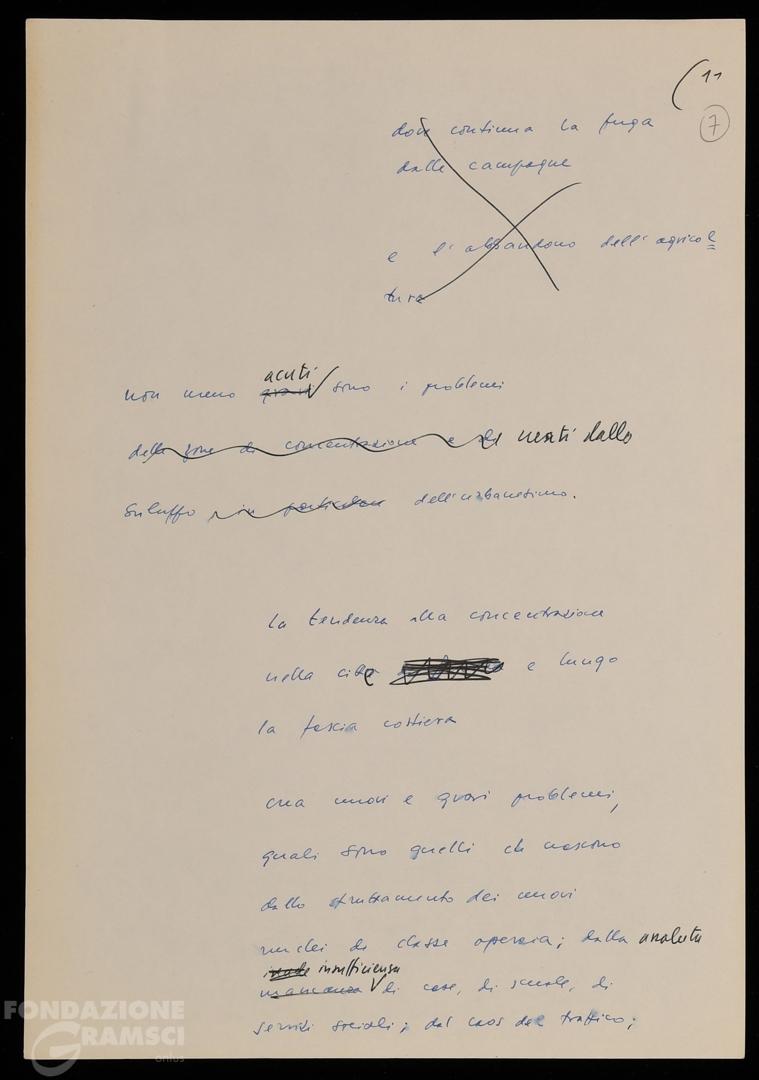 11
7
dove continua la fuga
dalle campagne
e l'abbandono dell'agricol
tura
acuti
non meno gravi sono i problemi
delle zone di concentrazione e di nati dallo
sviluppo in particolare dell'urbanesimo.
la tendenza alla concentrazione
nelle città e lungo
la fascia costiera
crea nuovi e gravi problemi,
quali sono quelli che nascono
dallo sfruttamento dei nuovi
nuclei di classe operaia; dalla assoluta
inade insufficienza
mancanza di case, di scuole, di
servizi sociali; dal caos del traffico;
FONDAZIONE
GRAMSCI
onlus